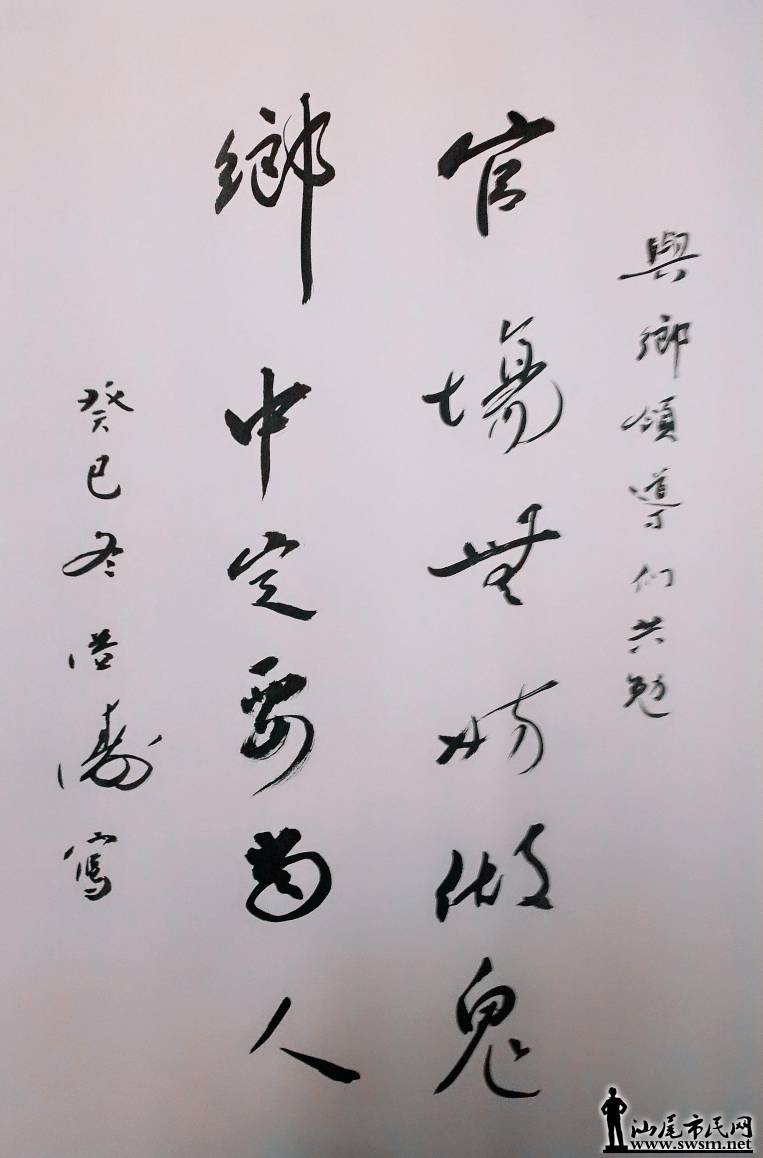 與鄉領導們共勉
官場無妨做鬼
鄉中定要為人
癸巳冬浩濤寫
汕尾市民网
www.swsm.net